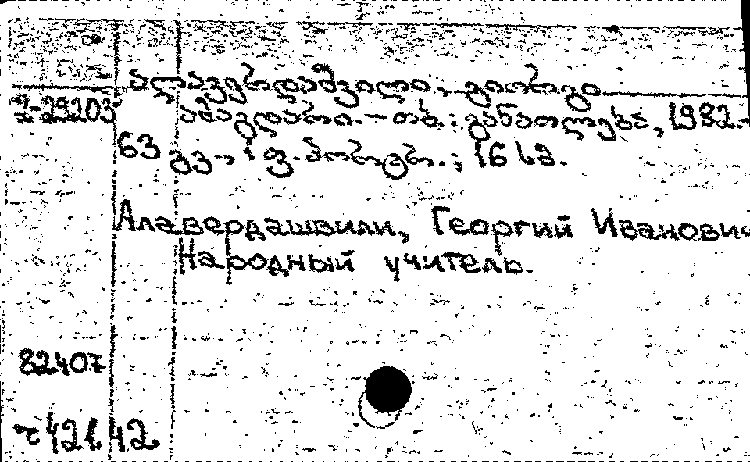 ალავერდაშვილი, გიორგი
2-29203 ამაგდარი. – თბ.: განათლება, 1982.–
63 გვ., 1 ფ. პორტრ.; 16 სმ.
Алавердашвили, Георгий Иванович
Народный учитель.
82407
421.42